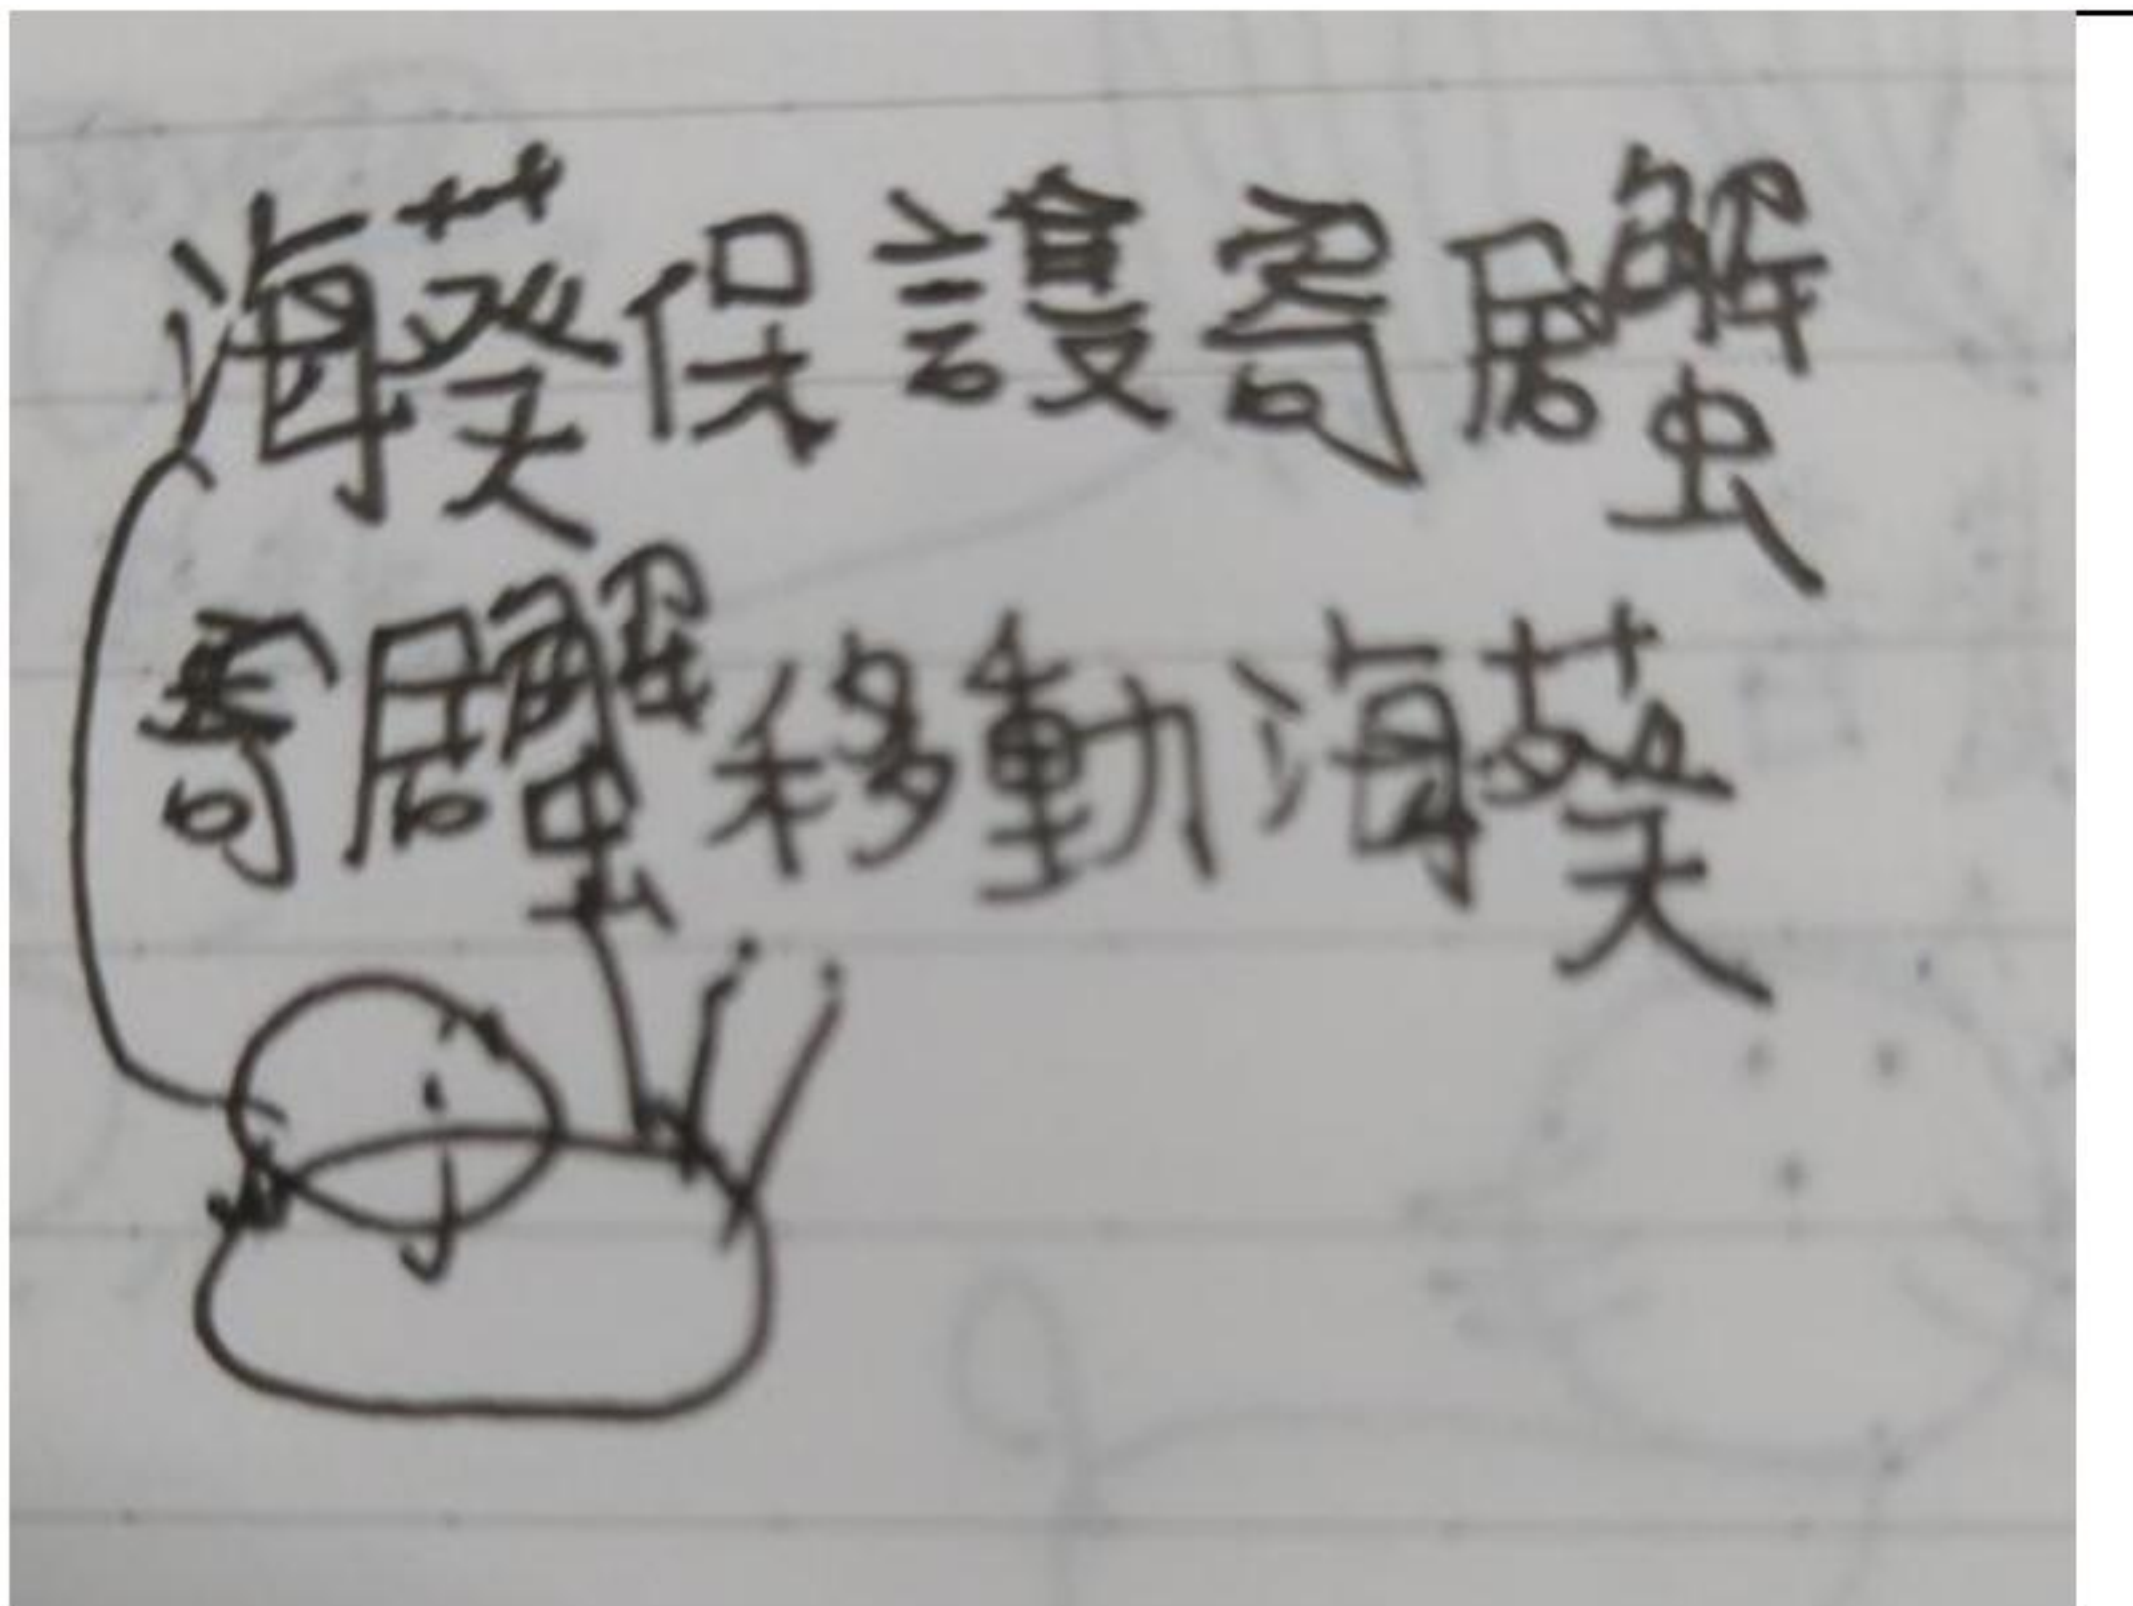 海葵保護寄居蟹
寄居蟹移動海葵